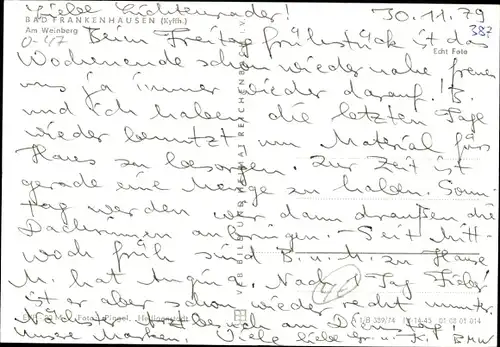 Liebe Lichtenrader! 30.11.79
BAD FRANKENHAUSEN (Kyffh.)
Am Weinberg
382
Beim Freitagfrühstück ist das
Echt Foto
Wochenende schon wieder nahe freue
uns ja immer wieder darauf! B.
und ich haben die letzten Tage
wieder benutzt um Material fürs
Haus zu besorgen. Zur Zeit ist
gerade eine Menge zu haben. Sonn
tag werden wir dann draußen die
Dachrinnen anbringen. - Seit Mitt-
woch früh sind B. u. M. zu Hause
M. hat Angina. Nach 1 Tag Fieber
ist er aber schon wieder recht munter.
Foto: Pingel, Heiligenstadt
A 1/B 339/74 IV-14-45 01 08 01 014
Nächste am Dienstag!
Unsere Viele liebe
VEB BILD UND HEIMAT REICHENBACH i. V.